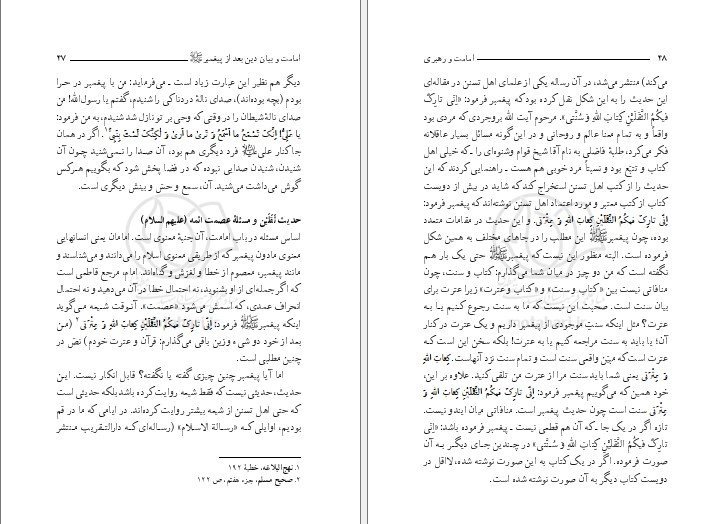 امامت و بیان دین بعد از پیغمبر ﷺ ۴۷
دیگر هم نظیر این عبارت زیاد است ـ می‌فرماید: من با پیغمبر در حرا
بودم (بچه بوده‌اند)، صدای نالهٔ دردناکی را شنیدم، گفتم یا رسول‌الله! من
صدای نالهٔ شیطان را در وقتی که وحی بر تو نازل شد شنیدم، به من فرمود:
یا عَلِیُّ! اِنَّکَ تَسْمَعُ ما اَسْمَعُ وَ تَریٰ ما اَریٰ وَ لٰکِنَّکَ لَسْتَ بِنَبِیٍّ ۱. اگر در همان
جا کنار علی فرد دیگری هم بود، آن صدا را نمی‌شنید چون آن
شنیدن، شنیدن صدایی نبوده که در فضا پخش شود که بگوییم هر کس
گوش می‌داشت می‌شنید. آن، سمع و حس و بینش دیگری است.
حدیث ثَقَلَیْن و مسئلهٔ عصمت ائمه (علیهم السلام)
اساس مسئله در باب امامت، آن جنبهٔ معنوی است. امامان یعنی انسانهایی
معنوی مادون پیغمبر که از طریقی معنوی اسلام را می‌دانند و می‌شناسند و
مانند پیغمبر، معصوم از خطا و لغزش و گناه‌اند. امام، مرجع قاطعی است
که اگر جمله‌ای از او بشنوید، نه احتمال خطا در آن می‌دهید و نه احتمال
انحراف عمدی، که اسمش می‌شود «عصمت». آنوقت شیعه می‌گوید
اینکه پیغمبر ﷺ فرمود: اِنّی تارِکٌ فیکُمُ الثَّقَلَیْنِ کِتابَ اللهِ وَ عِتْرَتی ۲ (من
بعد از خود دو شیء وزین باقی می‌گذارم: قرآن و عترت خودم) نص در
چنین مطلبی است.
اما آیا پیغمبر چنین چیزی گفته یا نگفته؟ قابل انکار نیست. این
حدیث، حدیثی نیست که فقط شیعه روایت کرده باشد بلکه حدیثی است
که حتی اهل تسنن از شیعه بیشتر روایت کرده‌اند. در ایامی که ما در قم
بودیم، اوایلی که «رسالة الاسلام» (رساله‌ای که دارالتقریب منتشر
۱. نهج‌البلاغه، خطبهٔ ۱۹۲
۲. صحیح مسلم، جزء هفتم، ص ۱۲۲
۴۸ امامت و رهبری
می‌کند) منتشر می‌شد، در آن رساله یکی از علمای اهل تسنن در مقاله‌ای
این حدیث را به این شکل نقل کرده بود که پیغمبر فرمود: «اِنّی تارِکٌ
فیکُمُ الثَّقَلَیْنِ کِتابَ اللهِ وَ سُنَّتی». مرحوم آیت الله بروجردی که مردی بود
واقعاً و به تمام معنا عالم و روحانی و در این گونه مسائل بسیار عاقلانه
فکر می‌کرد، طلبهٔ فاضلی به نام آقا شیخ قوام وشنوه‌ای را ـ که خیلی اهل
کتاب و تتبّع بود و نسبتاً مرد خوبی هم هست ـ راهنمایی کردند که این
حدیث را از کتب اهل تسنن استخراج کند که شاید در بیش از دویست
کتاب از کتب معتبر و مورد اعتماد اهل تسنن نوشته‌اند که پیغمبر فرمود:
اِنّی تارِکٌ فیکُمُ الثَّقَلَیْنِ کِتابَ اللهِ وَ عِتْرَتی. و این حدیث در مقامات متعدد
بوده، چون پیغمبر ﷺ این مطلب را در جاهای مختلف به همین شکل
فرموده است. البته منظور این نیست که پیغمبر ﷺ حتی یک بار هم
نگفته است که من دو چیز در میان شما می‌گذارم: کتاب و سنت، چون
منافاتی نیست بین «کتاب و سنت» و «کتاب و عترت» زیرا عترت برای
بیان سنت است. صحبت این نیست که ما به سنت رجوع کنیم یا به
عترت؟ مثل اینکه سنتِ موجودی از پیغمبر داریم و یک عترت در کنار
آن؛ یا باید به سنت مراجعه کنیم یا به عترت! بلکه سخن این است که
عترت است که مبیّن واقعی سنت است و تمام سنت نزد آنهاست. کِتابَ اللهِ
وَ عِتْرَتی یعنی شما باید سنت مرا از عترت من تلقی کنید. علاوه بر این،
خود همین که می‌گوییم پیغمبر فرمود: اِنّی تارِکٌ فیکُمُ الثَّقَلَیْنِ کِتابَ اللهِ وَ
عِتْرَتی سنت است چون حدیث پیغمبر است. منافاتی میان ایندو نیست.
تازه اگر در یک جا ـ که آن هم قطعی نیست ـ پیغمبر فرموده باشد: «اِنّی
تارِکٌ فیکُمُ الثَّقَلَیْنِ کِتابَ اللهِ وَ سُنَّتی» در چندین جای دیگر به آن
صورت فرموده. اگر در یک کتاب به این صورت نوشته شده، لااقل در
دویست کتاب دیگر به آن صورت نوشته شده است.